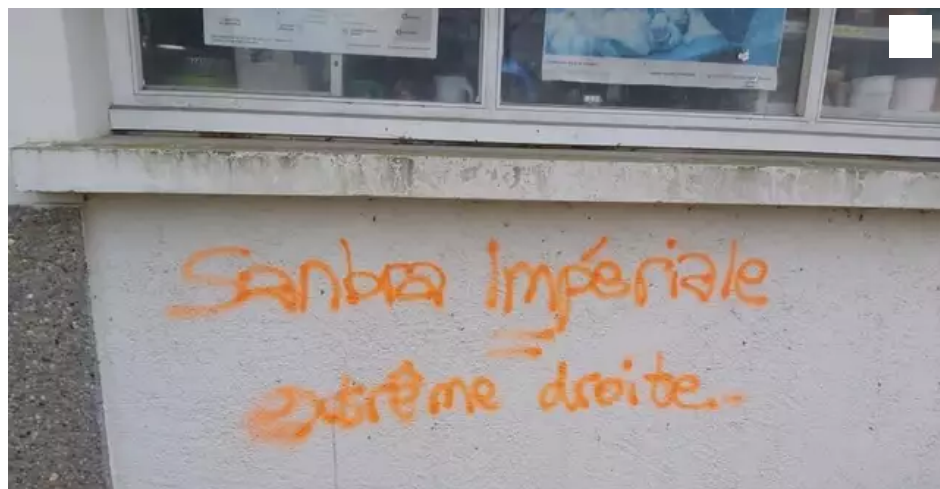 Sanbra Impériale
=
extrême droite.